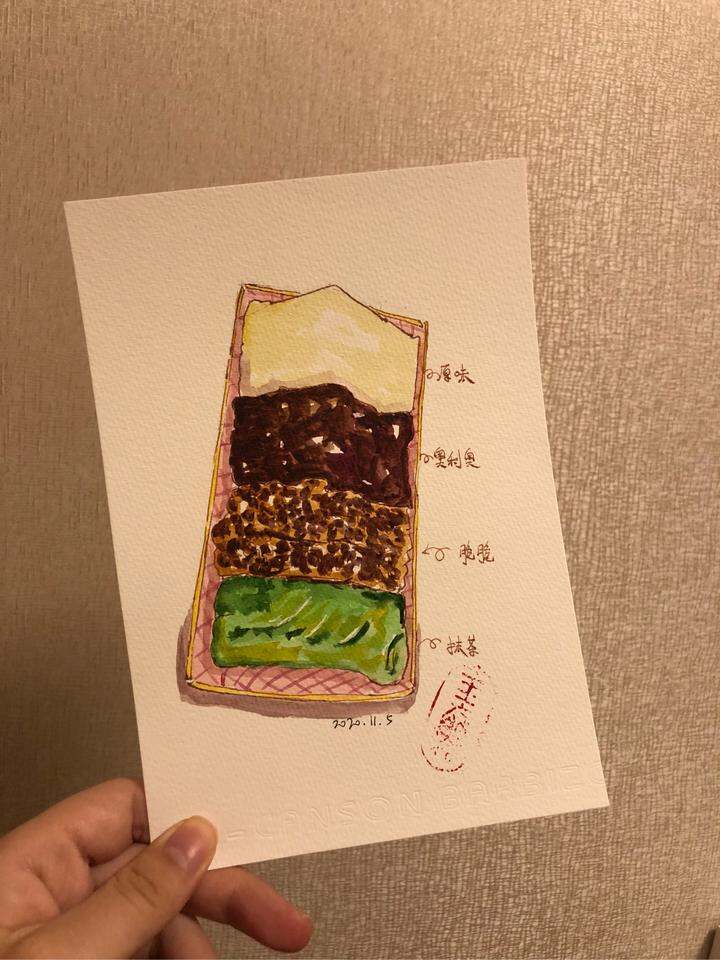 原味
奥利奥
脆脆
抹茶
2020.11.5
CANSON